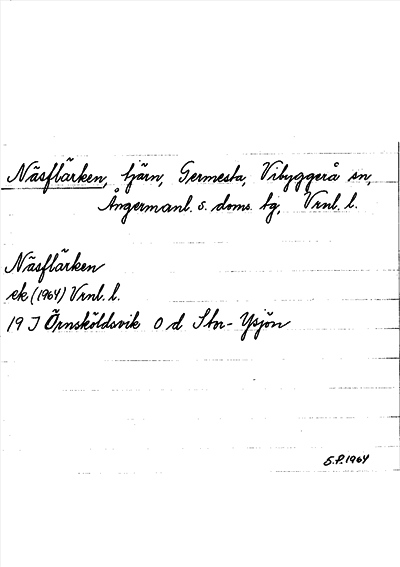 Näsflärken, tjärn, Germesta, Vibyggerå sn,
Ångermanl. s. doms. tg, Vrnl. l.
Näsflärken
ek (1964) Vrnl. l.
19 J Örnsköldsvik O d Stor-Ysjön
S.P. 1964